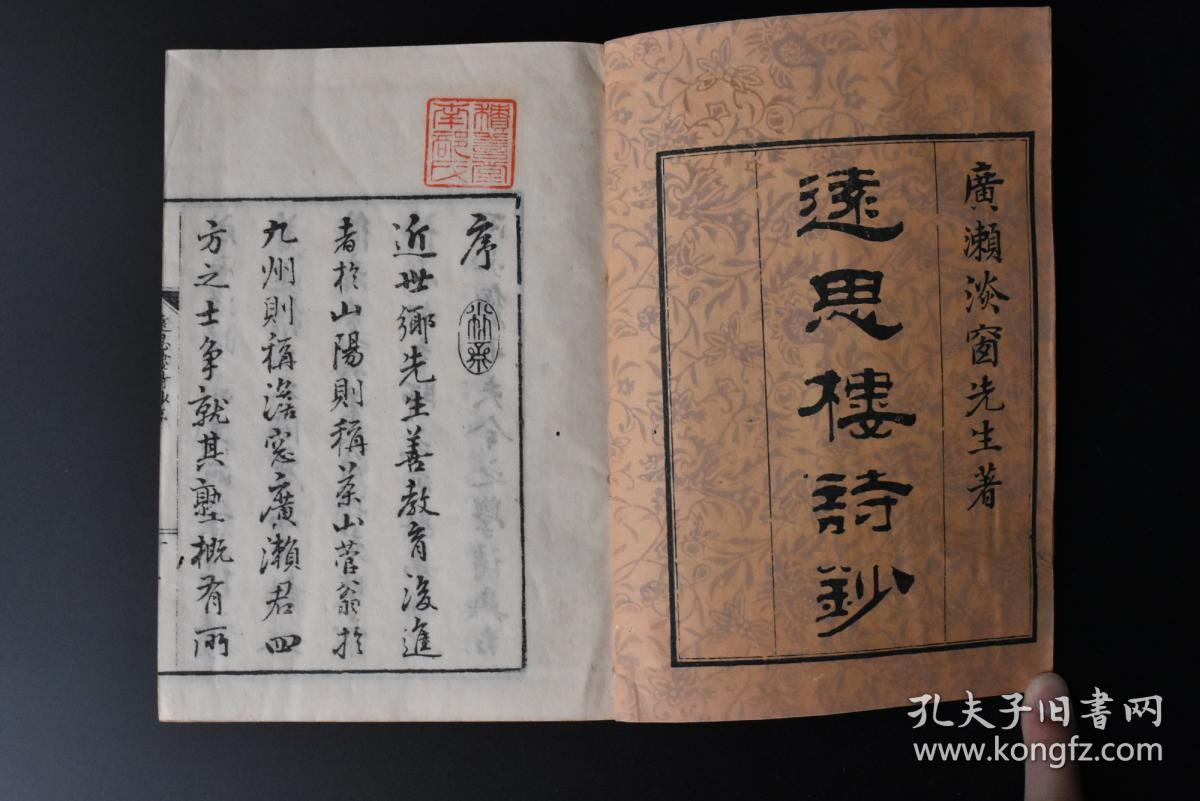 廣瀨淡窗先生著
遠思樓詩鈔
序
近世鄉先生善教育後進
者於山陽則稱茶山菅翁於
九州則稱淡窓廣瀨君四
方之士争就其塾概有所
孔夫子旧書网
www.kongfz.com